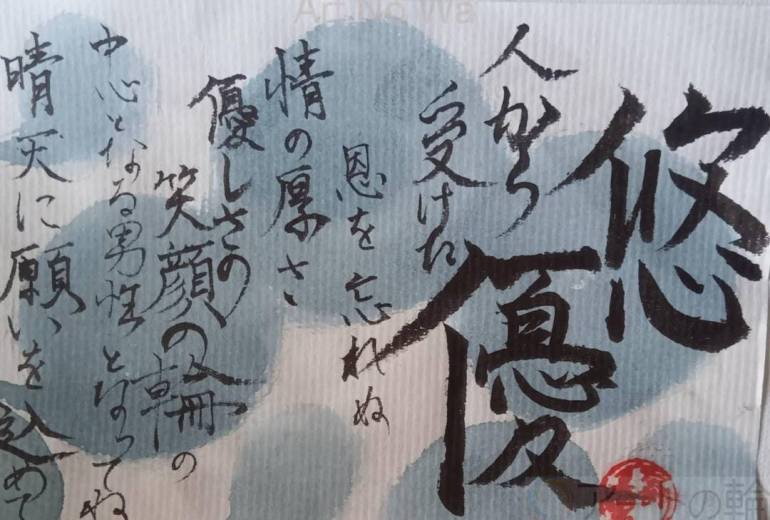 悠優
人から
受けた
恩を忘れぬ
情の厚さ
優しさの
笑顔の輪の
中心となる男性となってね
晴天に願いを込めて
Art No Wa
アートの輪